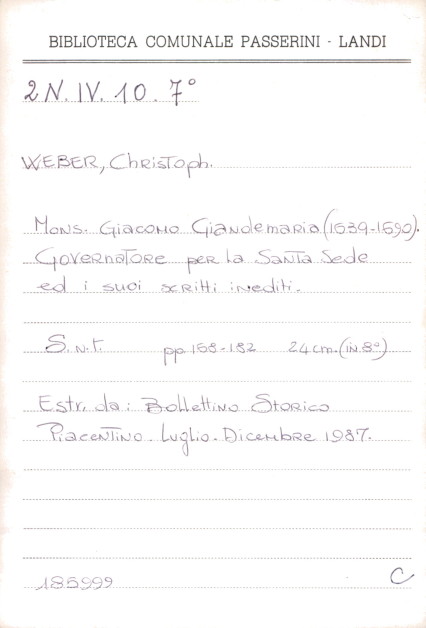 BIBLIOTECA COMUNALE PASSERINI - LANDI
2N. IV. 10. 7°
WEBER, Christoph.
Mons. Giacomo Giandemaria (1539-1590).
Governatore per la Santa Sede
ed i suoi scritti inediti.
S.n.t. pp. 158-182 24 cm. (in 8°)
Estr. da: Bollettino Storico
Piacentino. Luglio-Dicembre 1987.
185999 C